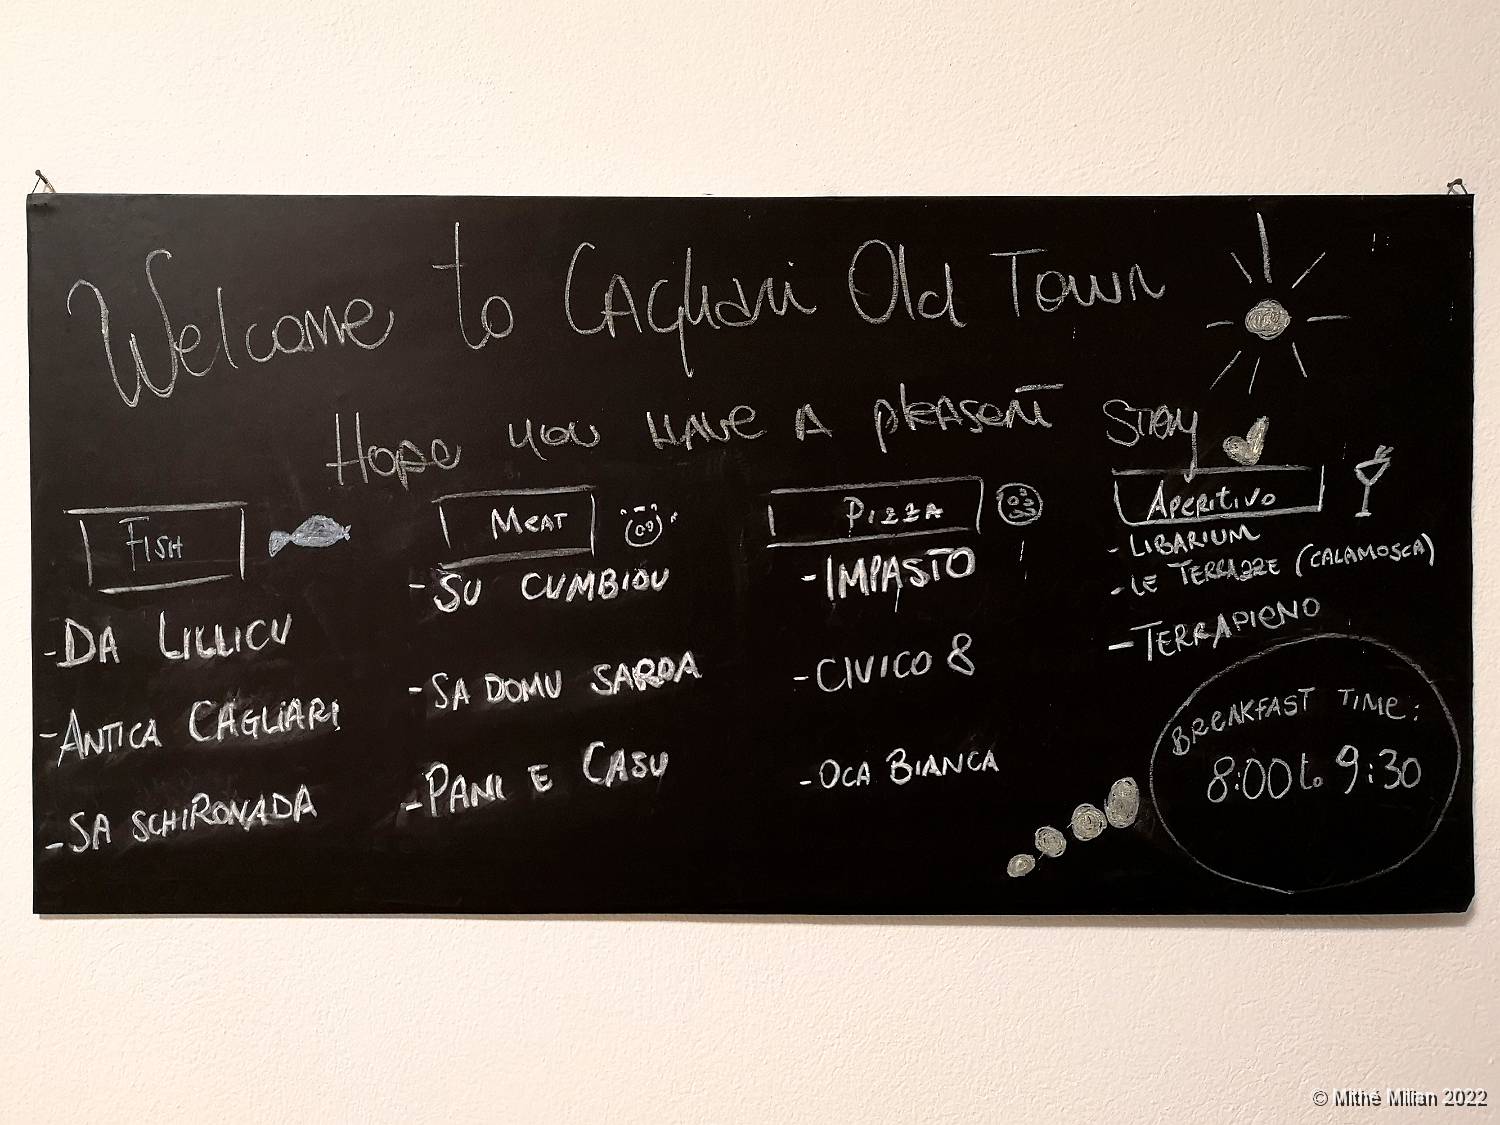 Welcome to CAgliari Old Town
Hope you HAVE A pleasent STAY
FISH
- DA LILLICU
- ANTICA CAGLIARI
- SA SCHIRONADA
MEAT
- SU CUMBIDU
- SA DOMU SARDA
- PANI E CASU
PIZZA
- IMPASTO
- CIVICO 8
- OCA BIANCA
APERITIVO
- LIBARIUM
- LE TERRAZZE (CALAMOSCA)
- TERRAPIENO
BREAKFAST TIME:
8:00 to 9:30
© Mithé Milian 2022